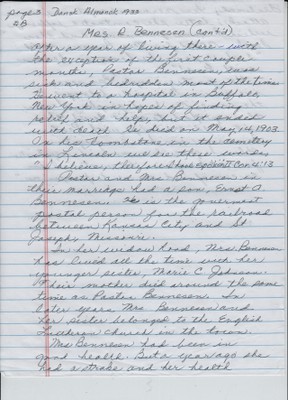 page 3 Dansk Almanak 1933
#8
Mrs. R. Bennesen (Cont'd)
After a year of living there - with
the exception of the first couple
months, Pastor Bennesen, was
sick and bedridden most of the time
He went to a hospital in Buffalo,
New York in hopes of finding
relief and help, but it ended
with death. He died on May 14, 1903
On his tombstone in the cemetery
in Lincoln under these words,
"I believe, therefore I have spoken" II Cor. 4:13
Pastor and Mrs Bennesen in
their marriage had a son, Ernst A
Bennesen. He is the government
postal person for the railroad
between Kansas City and St
Joseph, Missouri.
In her widow hood, Mrs. Bennesen
has lived all the time with her
younger sister, Marie C. Johnson.
Their mother died around the same
time as Pastor Bennesen. In
later years Mrs Bennesen and
her sister belonged to the English
Lutheran church in the town.
Mrs Bennesen had been in
good health. But a year ago she
had a stroke and her health